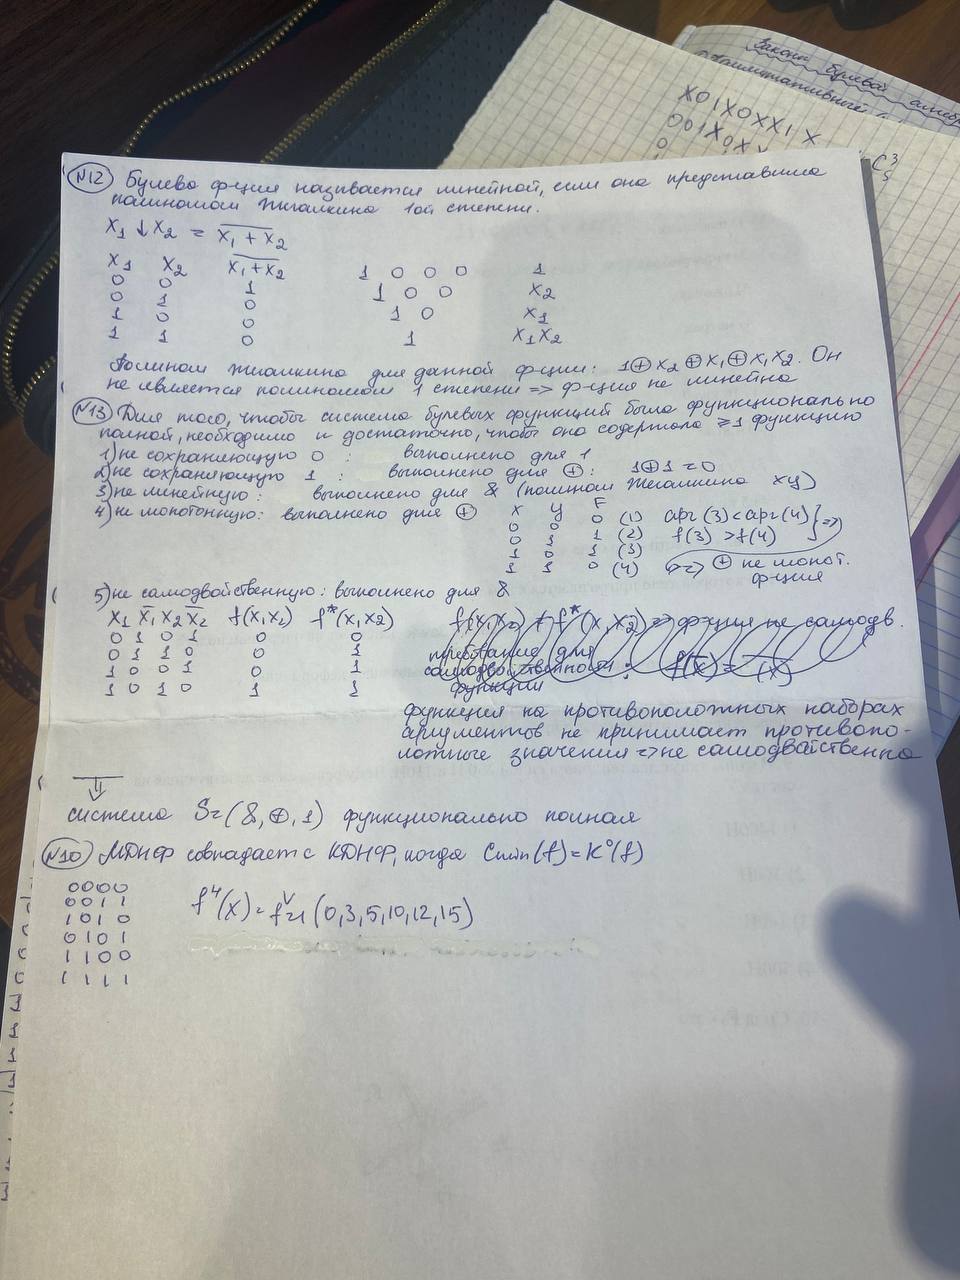 Законы булевой алгебры
X01X0XX1X
001X0X
C₅³
N12 Булева ф-ция называется линейной, если она представима
полиномом Жегалкина 1ой степени.
X₁ ↓ X₂ = \overline{X₁ + X₂}
X₁ X₂ \overline{X₁+X₂}
0 0 1 1 0 0 0 1
0 1 0 1 0 0 X₂
1 0 0 1 0 X₁
1 1 0 1 X₁X₂
Полином Жегалкина для данной ф-ции: 1⊕X₂⊕X₁⊕X₁X₂. Он
не является полиномом 1 степени => ф-ция не линейна
N13 Для того, чтобы система булевых функций была функционально
полной, необходимо и достаточно, чтобы она содержала ≥1 функцию
1) не сохраняющую 0 : выполнено для 1
2) не сохраняющую 1 : выполнено для ⊕: 1⊕1=0
3) не линейную : выполнено для & (полином Жегалкина xy)
4) не монотонную: выполнено для ⊕ x y F
0 0 0 (1) арг(3)<арг(4) } =>
0 1 1 (2) f(3) >f(4)
1 0 1 (3)
1 1 0 (4) => ⊕ не монот.
ф-ция
5) не самодвойственную: выполнено для &
X₁ \overline{X₁} X₂ \overline{X₂} f(X₁X₂) f*(X₁X₂) f(X₁X₂) ≠ f*(X₁,X₂) => ф-ция не самодв.
0 1 0 1 0 0
0 1 1 0 0 1 требание для
1 0 0 1 0 1 самодвойственности :
1 0 1 0 1 1 функции
функция на противоположных наборах
аргументов не принимает противопо-
ложные значения => не самодвойственна
система S=(&,⊕,1) функционально полная
N10 МДНФ совпадает с КДНФ, когда Cmin(f)=K⁰(f)
0000
0011 f⁴(X) = f^v=1 (0,3,5,10,12,15)
1010
0101
1100
1111